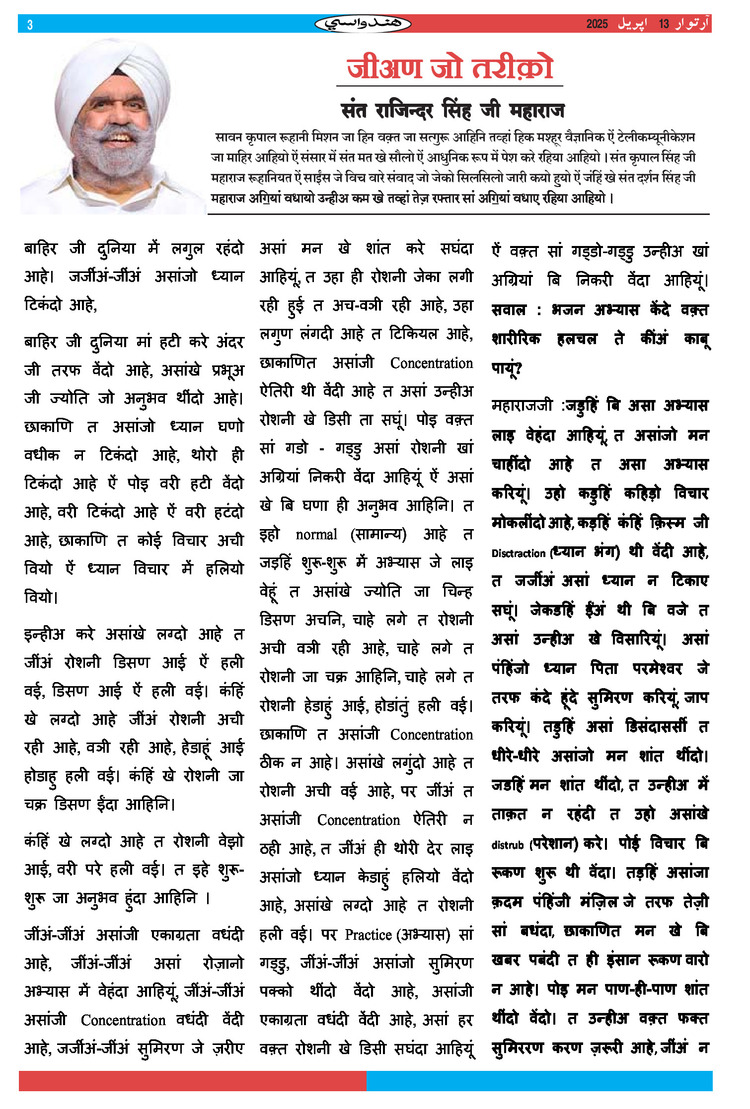 3
هندواسي
آرتوار 13 اپريل 2025
जीअण जो तरीक़ो
संत राजिन्दर सिंह जी महाराज
सावन कृपाल रूहानी मिशन जा हिन वक़्त जा सत्गुरू आहिनि तव्हां हिक मश्हूर वैज्ञानिक ऐं टेलीकम्यूनीकेशन
जा माहिर आहियो ऐं संसार में संत मत खे सौलो ऐं आधुनिक रूप में पेश करे रहिया आहियो । संत कृपाल सिंह जी
महाराज रूहानियत ऐं साईंस जे विच वारे संवाद जो जेको सिलसिलो जारी कयो हुयो ऐं जंहिं खे संत दर्शन सिंह जी
महाराज अग़ियां वधायो उन्हीअ कम खे तव्हां तेज़ रफ्तार सां अग़ियां वधाए रहिया आहियो ।
बाहिर जी दुनिया में लगुल रहंदो
आहे। जर्जीअं-जीअं असांजो ध्यान
टिकंदो आहे,
बाहिर जी दुनिया मां हटी करे अंदर
जी तरफ वेंदो आहे, असांखे प्रभूअ
जी ज्योति जो अनुभव थींदो आहे।
छाकाणि त असांजो ध्यान घणो
वधीक न टिकंदो आहे, थोरो ही
टिकंदो आहे ऐं पोइ वरी हटी वेंदो
आहे, वरी टिकंदो आहे ऐं वरी हटंदो
आहे, छाकाणि त कोई विचार अची
वियो ऐं ध्यान विचार में हलियो
वियो।
इन्हीअ करे असांखे लग्दो आहे त
जींअं रोशनी डिसण आई ऐं हली
वई, डिसण आई ऐं हली वई। कंहिं
खे लग्दो आहे जींअं रोशनी अची
रही आहे, वञी रही आहे, हेडाहूं आई
होडाहु हली वई। कंहिं खे रोशनी जा
चक्र डिसण ईंदा आहिनि।
कंहिं खे लग्दो आहे त रोशनी वेझो
आई, वरी परे हली वई। त इहे शुरू-
शुरू जा अनुभव हुंदा आहिनि ।
जींअं-जींअं असांजी एकाग्रता वधंदी
आहे, जींअं-जींअं असां रोज़ानो
अभ्यास में वेहंदा आहियूं, जींअं-जींअं
असांजी Concentration वधंदी वेंदी
आहे, जर्जीअं-जींअं सुमिरण जे ज़रीए
असां मन खे शांत करे सघंदा
आहियूं, त उहा ही रोशनी जेका लगी
रही हुई त अच-वञी रही आहे, उहा
लगुण लंगदी आहे त टिकियल आहे,
छाकाणित असांजी Concentration
ऐतिरी थी वेंदी आहे त असां उन्हीअ
रोशनी खे डिसी ता सघूं। पोइ वक़्त
सां गडो - गड्डु असां रोशनी खां
अग्रियां निकरी वेंदा आहियूं ऐं असां
खे बि घणा ही अनुभव आहिनि। त
इहो normal (सामान्य) आहे त
जड़हिं शुरू-शुरू में अभ्यास जे लाइ
वेहूं त असांखे ज्योति जा चिन्ह
डिसण अचनि, चाहे लगे त रोशनी
अची वञी रही आहे, चाहे लगे त
रोशनी जा चक्र आहिनि, चाहे लगे त
रोशनी हेडाहुं आई, होडांतुं हली वई।
छाकाणि त असांजी Concentration
ठीक न आहे। असांखे लगुंदो आहे त
रोशनी अची वई आहे, पर जींअं त
असांजी Concentration ऐतिरी न
ठही आहे, त जींअं ही थोरी देर लाइ
असांजो ध्यान केडाहुं हलियो वेंदो
आहे, असांखे लग्दो आहे त रोशनी
हली वई। पर Practice (अभ्यास) सां
गड्डु, जींअं-जींअं असांजो सुमिरण
पक्को थींदो वेंदो आहे, असांजी
एकाग्रता वधंदी वेंदी आहे, असां हर
वक़्त रोशनी खे डिसी सघंदा आहियूं
ऐं वक़्त सां गड्डो-गड्डु उन्हीअ खां
अग्रियां बि निकरी वेंदा आहियूं।
सवाल : भजन अभ्यास केंदे वक़्त
शारीरिक हलचल ते कींअं काबू
पायूं?
महाराजजी :जड्डहिं बि असा अभ्यास
लाइ वेहंदा आहियूं, त असांजो मन
चाहींदो आहे त असा अभ्यास
करियूं। उहो कड्डुहिं कहिड़ो विचार
मोकलींदो आहे, कड़हिं कंहिं क़िस्म जी
Disctraction (ध्यान भंग) थी वेंदी आहे,
त जर्जीअं असां ध्यान न टिकाए
सघूं। जेकडहिं ईंअं थी बि वजे त
असां उन्हीअ खे विसारियूं। असां
पंहिंजो ध्यान पिता परमेश्वर जे
तरफ कंदे हूंदे सुमिरण करियूं, जाप
करियूं। तड्डुहिं असां डिसंदासर्सी त
धीरे-धीरे असांजो मन शांत थींदो।
जडहिं मन शांत थींदो, त उन्हीअ में
ताक़त न रहंदी त उहो असांखे
distrub (परेशान) करे। पोई विचार बि
रूकण शुरू थी वेंदा। तड़हिं असांजा
क़दम पंहिंजी मंज़िल जे तरफ तेज़ी
सां बधंदा, छाकाणित मन खे बि
खबर पबंदी त ही इंसान रूकण वारो
न आहे। पोइ मन पाण-ही-पाण शांत
थींदो वेंदो। त उन्हीअ वक़्त फक्त
सुमिररण करण ज़रूरी आहे, जींअं न